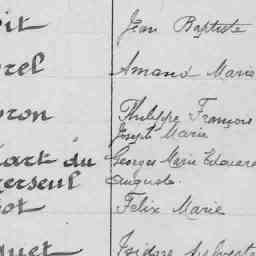 oit Jean Baptiste
rel Amand Marie
ron Philippe François
Joseph Marie
art du Georges Marie Edouard
erseul Auguste.
ot Felix Marie
uet Isidore Sylvestre